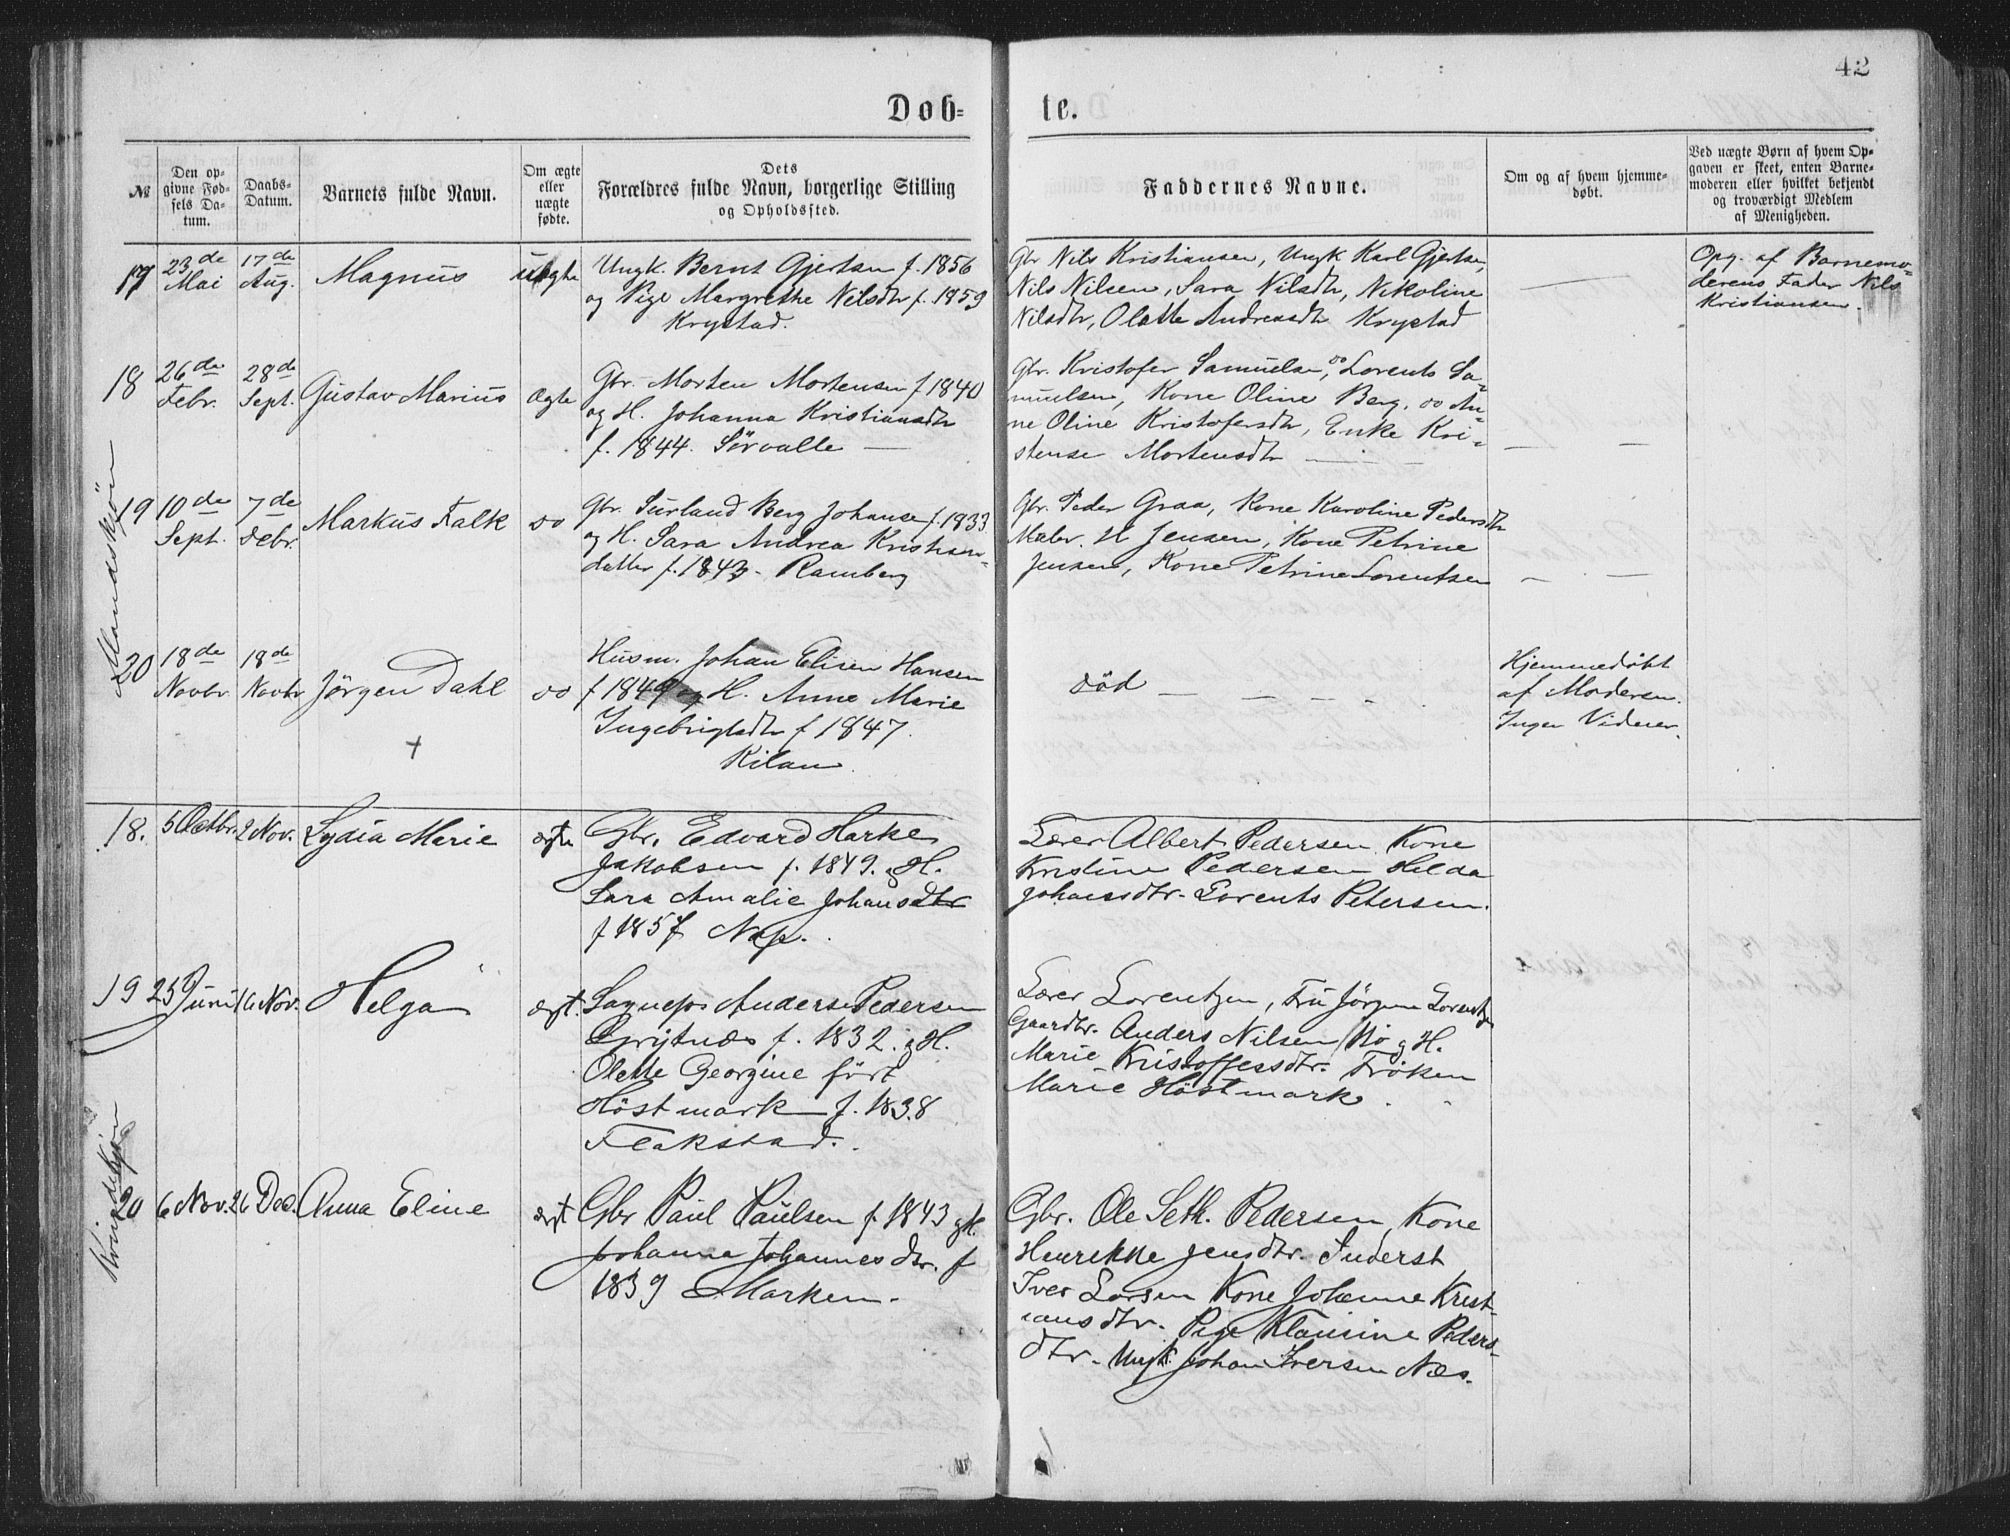 42
Døb=
te.
№
Den op-
givne Fød-
sels Da-
tum.
Daabs-
Datum.
Barnets fulde Navn.
Om ægte
eller
uægte
fødte.
Dets
Forældres fulde Navn, borgerlige Stilling
og Opholdssted.
Faddernes Navne.
Om og af hvem hjemme-
døbt.
Ved uægte Børn af hvem Op-
gaven er skeet, enten Barne-
moderen eller hvilket bekjendt
og troværdigt Medlem
af Menigheden.
Mandskjön
17
23de
Mai
17de
Aug.
Magnus
uægte
Ungk. Bernt Gjertsen f. 1856
og Pige Margrethe Nilsdtr f. 1859
Krystad.
Gbr Nils Kristiansen, Ungk. Karl Gjertsen,
Nils Nilsen, Sara Nilsdtr, Nikoline
Nilsdtr, Olette Andreasdtr Krystad
Opg. af Barnemo-
derens Fader Nils
Kristiansen.
18
26de
Febr.
28de
Sept.
Gustav Marius
Ægte
Gbr. Morten Mortensen f 1840
og H. Johanna Kristiansdtr
f. 1844. Sörvalle —
Gbr. Kristofer Samuelsen, do Lorents Sa-
muelsen, Kone Oline Berg, do An-
ne Oline Kristofersdtr, Enke Kri-
stense Mortensdtr
19
10de
Sept.
7de
Debr.
Markus Falk
do
Gbr. Berg Johansen f. 1833
og H. Sara Andrea Kristian-
datter f. 1843. Ramberg
Gbr. Peder Graa, Kone Karoline Pedersdtr
Maler H Jensen, Kone Petrine
Jensen, Kone Petrine Lorentsen
20
18de
Novbr
18de
Novbr
Jörgen Dahl
+
do
Husm. Johan Elisen Hansen
f 1849 og H. Anne Marie
Ingebrigtsdtr f 1847.
Kilan
död
Hjemmedöbt
af Moderen.
Ingen Vidner.
Kvindekjön
18.
5 Octbr.
2 Nov.
Lydia Marie
ægte
Gbr. Edvard Harke
Jakobsen f. 1849. og H.
Sara Amalie Johansdtr
f 1857 Nap.
Lærer Albert Pedersen Kone
Kristine Pedersen Helda
Johansdtr. Lorents Petersen.
19
25 Juni
16 Nov.
Helga
ægt.
Sognepr Anders Pedersen
Grytnæs f. 1832. og H.
Olette Georgine født
Høstmark f. 1838
Flakstad.
Lærer Lorentzen, Fru Jörgine Lorentzen
Gaardbr. Anders Nilsen Mo og H.
Marie Kristoffersdtr. Fröken
Marie Höstmark.
20
6 Nov.
26 Dec.
Anna Eline
ægt
Gbr Paul Paulsen f. 1843 og H.
Johanna Johannesdtr. f
1839 Marken.
Gbr. Ole Seth. Pedersen, Kone
Henrikke Jensdtr. Inderst
Iver Larsen Kone Johanne Krist-
iansdtr. Pige Klausine Peders-
dtr. Ungk. Johan Iversen Næs.